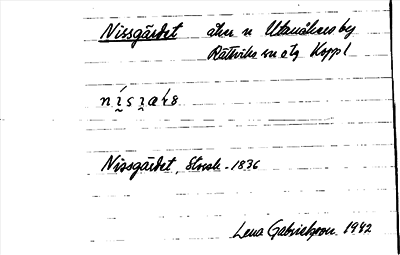 Nissgärdet åker n Utanåkers by
Rättviks sn o tg Kopp l
Nissgärdet, Storsk - 1836
Lena Gabrielsson 1942